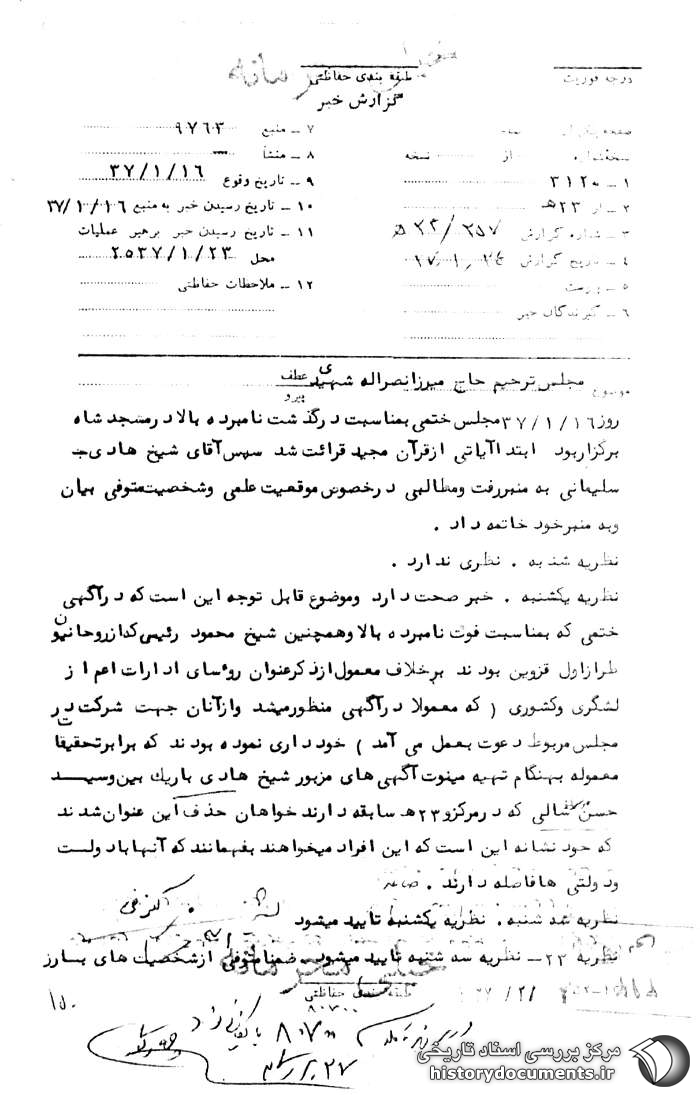 طبقه بندی حفاظتی
درجه فوریت
گزارش خبر
۷ ــ منبع ۹۷۶۳
۸ ــ منشأ
نسخه از
۹ ــ تاریخ وقوع ۳۷/۱/۱۶
۱ ــ ۳۱۲۰
۱۰ ــ تاریخ رسیدن خبر به منبع ۳۷/۱/۱۶
۲ ــ از ۲۳هـ
۱۱ ــ تاریخ رسیدن خبر برهبر عملیات
۳ ــ شماره گزارش
محل ۲۵۳۷/۱/۲۳
۴ ــ تاریخ گزارش
۱۲ ــ ملاحظات حفاظتی
۵ ــ پیوست
۶ ــ گیرندگان خبر
موضوع مجلس ترحیم حاج میرزانصراله شهیدی عطف
پیرو
روز ۳۷/۱/۱۶ مجلس ختمی بمناسبت درگذشت نامبرده بالا درمسجد شاه
برگزاربود ابتداآیاتی ازقرآن مجید قرائت شد سپس آقای شیخ هادی
سلیمانی به منبررفت ومطالبی درخصوص موقعیت علمی وشخصیت متوفی بیان
وبه منبرخود خاتمه داد .
نظریه شنبه . نظری ندارد .
نظریه یکشنبه . خبر صحت دارد وموضوع قابل توجه این است که درآگهی
ختمی که بمناسبت فوت نامبرده بالا وهمچنین شیخ محمود رئیسی که ازروحانیون
طرازاول قزوین بودند برخلاف معمول ازذکرعنوان روسای ادارات اعم از
لشگری وکشوری ( که معمولا درآگهی منظورمیشد وازآنان جهت شرکت در
مجلس مربوط دعوت بعمل می آمد ) خودداری نموده بودند که برابرتحقیقات
معموله بهنگام تهیه مینوت آگهی های مزبور شیخ هادی باریك بین وسید
حسن شالی که درمرکزو ۲۳هـ سابقه دارند خواهان حذف این عنوان شدند
که خود نشانه این است که این افراد میخواهند بفهمانند که آنها بادولت
ودولتی هافاصله دارند .
نظریه سه شنبه . نظریه یکشنبه تایید میشود
نظریه ۲۳ــ نظریه سه شنبه تایید میشود . ضمنا متوفی ازشخصیت های بارز
طبقه بندی حفاظتی
۸۰۷۰۰
۱۵۰
مرکز بررسی اسناد تاریخی
historydocuments.ir